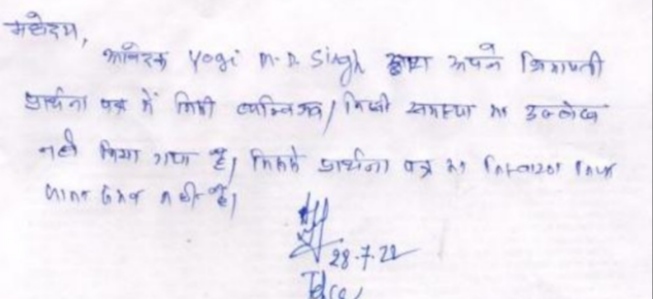 महोदय,
आवेदक Yogi M.P. Singh द्वारा अपने शिकायती
प्रार्थना पत्र में किसी व्यक्तिगत/निजी समस्या का उल्लेख
नही किया गया है, जिससे प्रार्थना पत्र का निस्तारण किया
जाना संभव नही है।
28.7.22